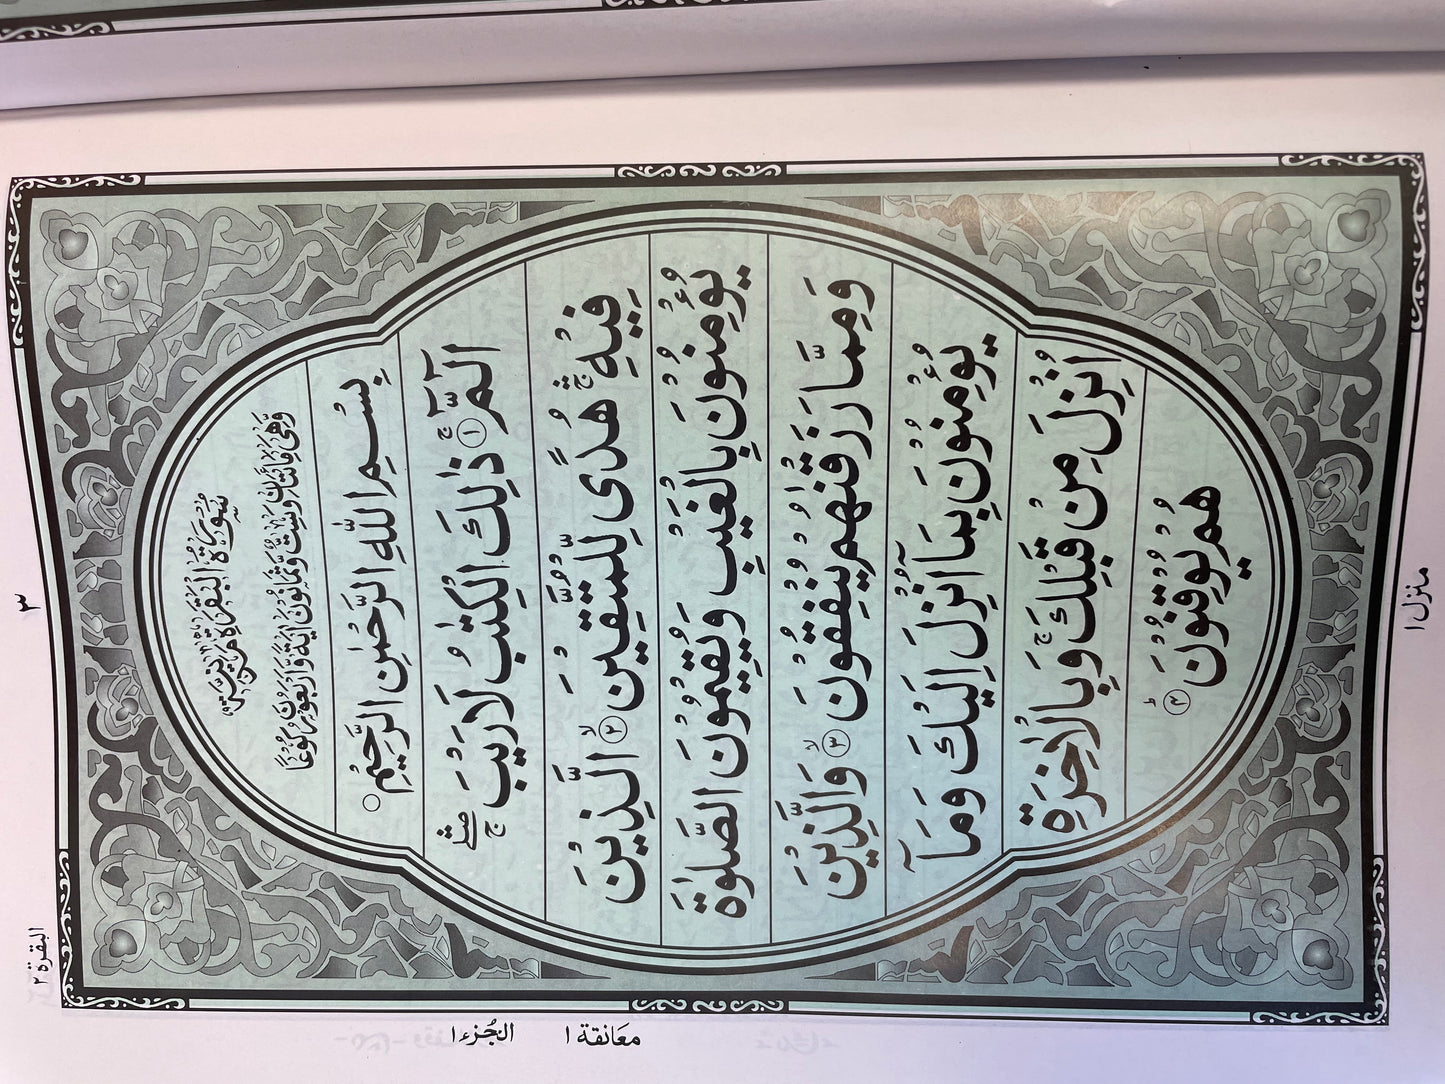 البقرة ٢
٣
سُوْرَةُ الْبَقَرَةِ مَدَنِيَّةٌ
وَّهِيَ مِائَتَانِ وَسِتٌّ وَّثَمَانُوْنَ اٰيَةً وَّاَرْبَعُوْنَ رُكُوْعًا
بِسْمِ اللّٰهِ الرَّحْمٰنِ الرَّحِيْمِ ○
الٓمّٓ ۚ﴿١﴾ ذٰلِكَ الْكِتٰبُ لَا رَيْبَ ۛۚۖ
فِيْهِ ۛۚ هُدًى لِّلْمُتَّقِيْنَ ۙ﴿٢﴾ الَّذِيْنَ
يُؤْمِنُوْنَ بِالْغَيْبِ وَيُقِيْمُوْنَ الصَّلٰوةَ
وَمِمَّا رَزَقْنٰهُمْ يُنْفِقُوْنَ ۙ﴿٣﴾ وَالَّذِيْنَ
يُؤْمِنُوْنَ بِمَآ اُنْزِلَ اِلَيْكَ وَمَآ
اُنْزِلَ مِنْ قَبْلِكَ ۚ وَبِالْاٰخِرَةِ
هُمْ يُوْقِنُوْنَ ؕ﴿٤﴾
الجُزء ١
معَانقة ١
منزل ١